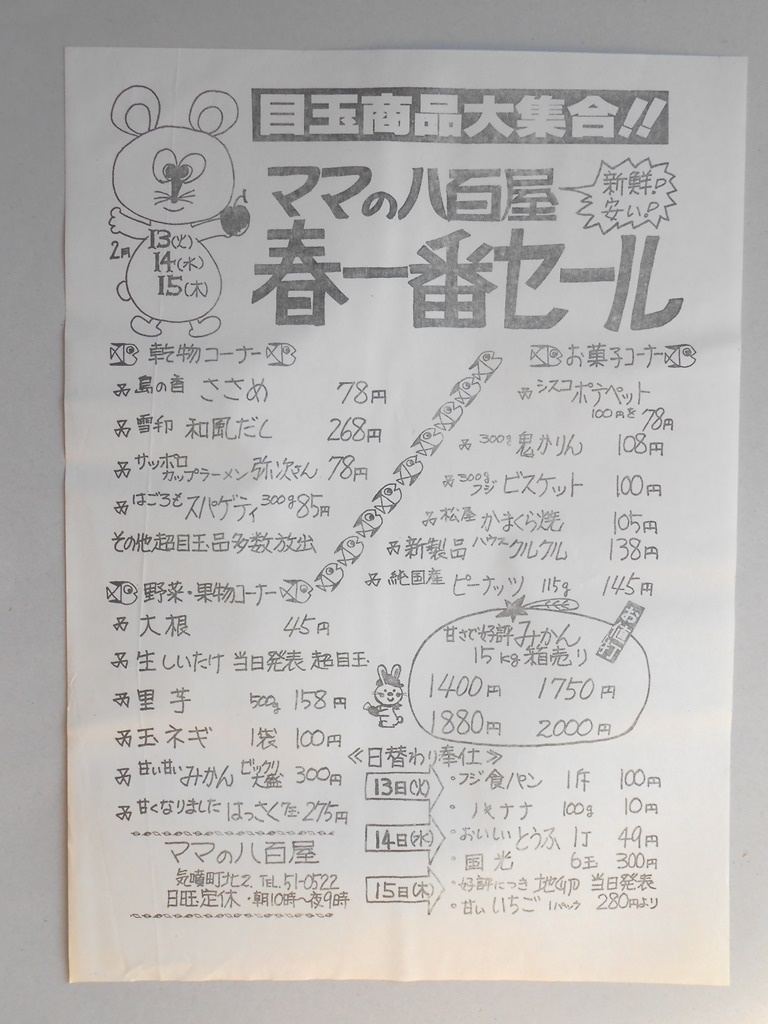 目玉商品大集合!!
ママの八百屋
新鮮!
安い!
春一番セール
2月
13(火)
14(水)
15(木)
乾物コーナー
島の香 ささめ 78円
雪印 和風だし 268円
サッポロ カップラーメン 弥次さん 78円
はごろも スパゲティ 300g 85円
その他超目玉品多数放出
お菓子コーナー
シスコ ポテペット
100円を78円
300g 鬼かりん 108円
300g フジ ビスケット 100円
松屋 かまくら焼 105円
新製品 ハウス クルクル 138円
純国産 ピーナッツ 115g 145円
野菜・果物コーナー
大根 45円
生しいたけ 当日発表 超目玉
里芋 500g 158円
玉ネギ 1袋 100円
甘い甘い みかん ビックリ大盛 300円
甘くなりました はっさく 7玉 275円
お値打
甘さで好評 みかん
15kg箱売り
1400円 1750円
1880円 2000円
≪日替わり奉仕≫
13日(火)
・フジ食パン 1斤 100円
・バナナ 100g 10円
14日(水)
・おいしい とうふ 1丁 49円
・国光 6玉 300円
15日(木)
・好評につき 地卵 当日発表
・甘い いちご 1パック 280円より
ママの八百屋
町北2. TEL.51-0522
日旺定休・朝10時〜夜9時